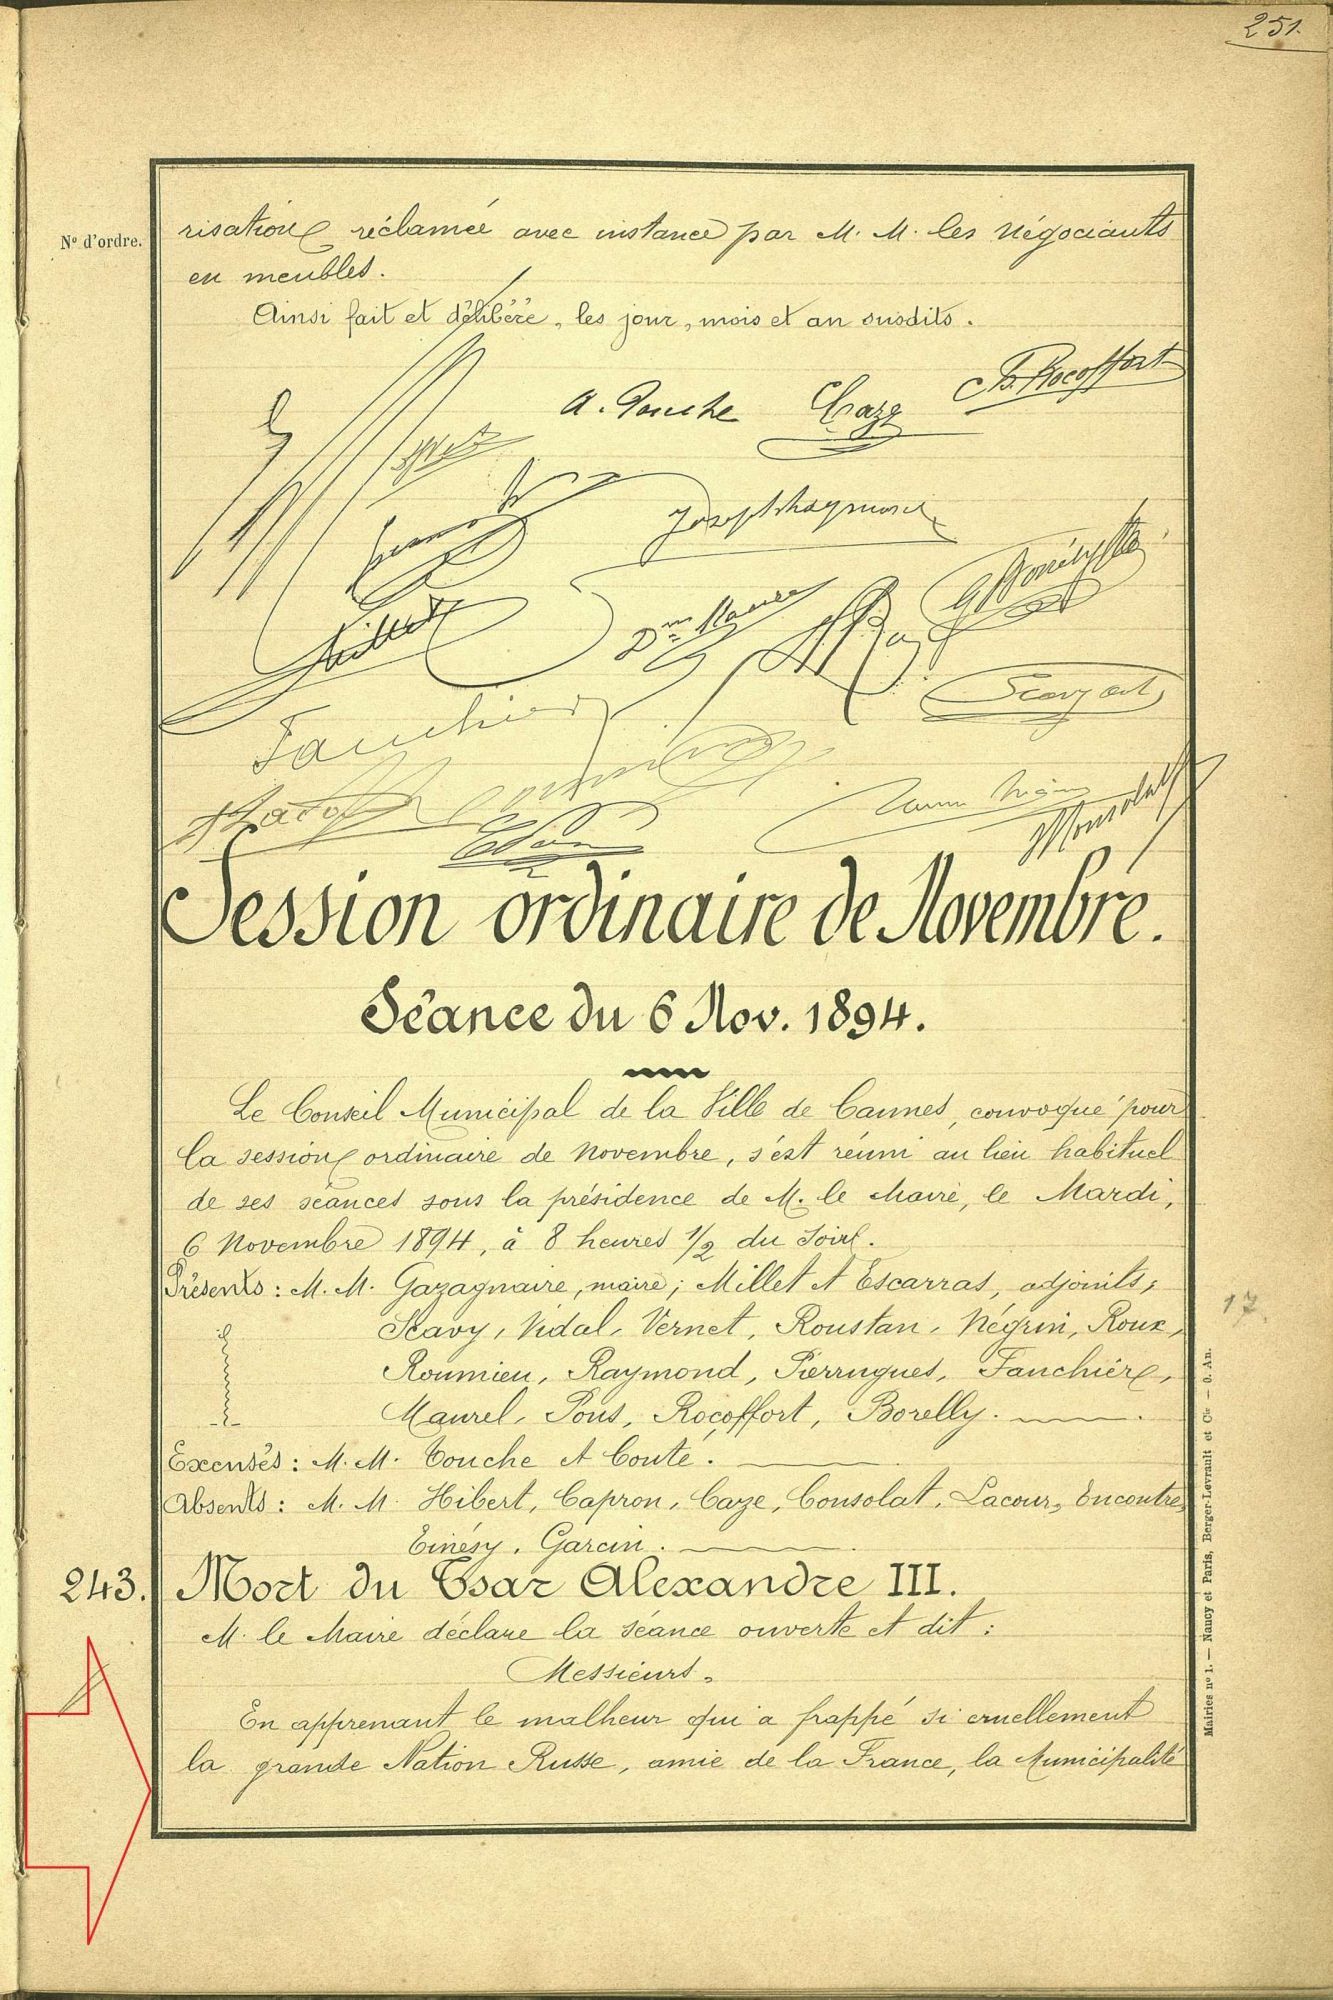 251.
N° d'ordre.
risation réclamée avec instance par M. M. les Négociants
en meubles.
Ainsi fait et délibéré, les jour, mois et an susdits.
A. Touche Caze B. Rocoffort
Joseph Raymond
Millet
Fauchier
Session ordinaire de Novembre.
Séance du 6 Nov. 1894.
Le Conseil Municipal de la Ville de Cannes, convoqué pour
la session ordinaire de novembre, s'est réuni au lieu habituel
de ses séances sous la présidence de M. le Maire, le Mardi,
6 Novembre 1894, à 8 heures 1/2 du soir.
Présents : M. M. Gazagnaire, maire; Millet et Escarras, adjoints;
Scavy, Vidal, Vernet, Roustan, Négrin, Roux,
17
Roumieu, Raymond, Pierrugues, Fanchière,
Maurel, Pons, Rocoffort, Borelly.
Excusés : M. M. Touche et Conte.
Absents : M. M. Hibert, Capron, Caze, Consolat, Lacour, Encontre,
Einésy, Garcin.
243. Mort du Tsar Alexandre III.
M. le Maire déclare la séance ouverte et dit :
Messieurs,
En apprenant le malheur qui a frappé si cruellement
la grande Nation Russe, amie de la France, la Municipalité
Mairies n° 1. — Nancy et Paris, Berger-Levrault et Cie — d. An.